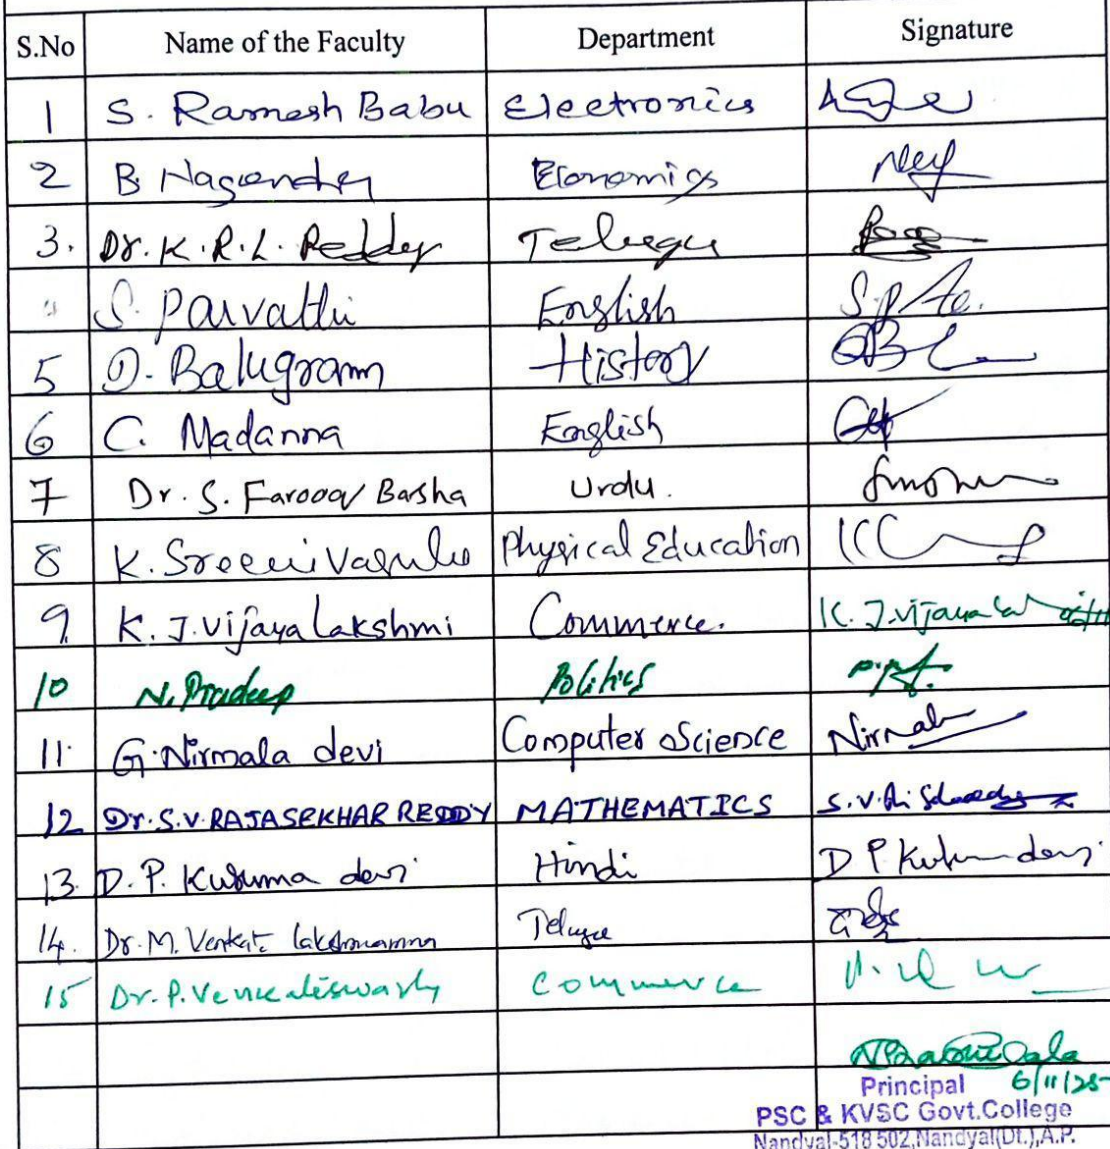 S.No Name of the Faculty Department Signature
1 S. Ramesh Babu Electronics
2 B. Nagendra Economics
3. Dr. K. R. L. Reddy Telugu
S. Parvathi English
5 D. Balugram History
6 C. Madanna English
7 Dr. S. Farooq Basha Urdu.
8 K. Sreenivasulu Physical Education
9. K. J. Vijaya Lakshmi Commerce. K. J. Vijaya
10 N. Pradeep Politics
11. G. Nirmala devi Computer Science Nirmala
12 Dr. S. V. RAJASEKHAR REDDY MATHEMATICS
13. D. P. Kusuma devi Hindi D P Kusuma devi
14. Dr. M. Venkata lakshmamma Telugu
15 Dr. P. Venkateswarlu Commerce
Principal 6/11/25
PSC & KVSC Govt.College
Nandyal-518 502, Nandyal(Dt.), A.P.